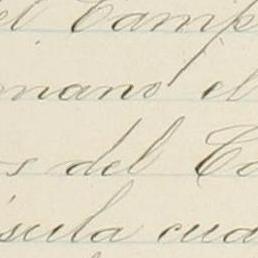 el Camp
mano el
s del Co
sula cua